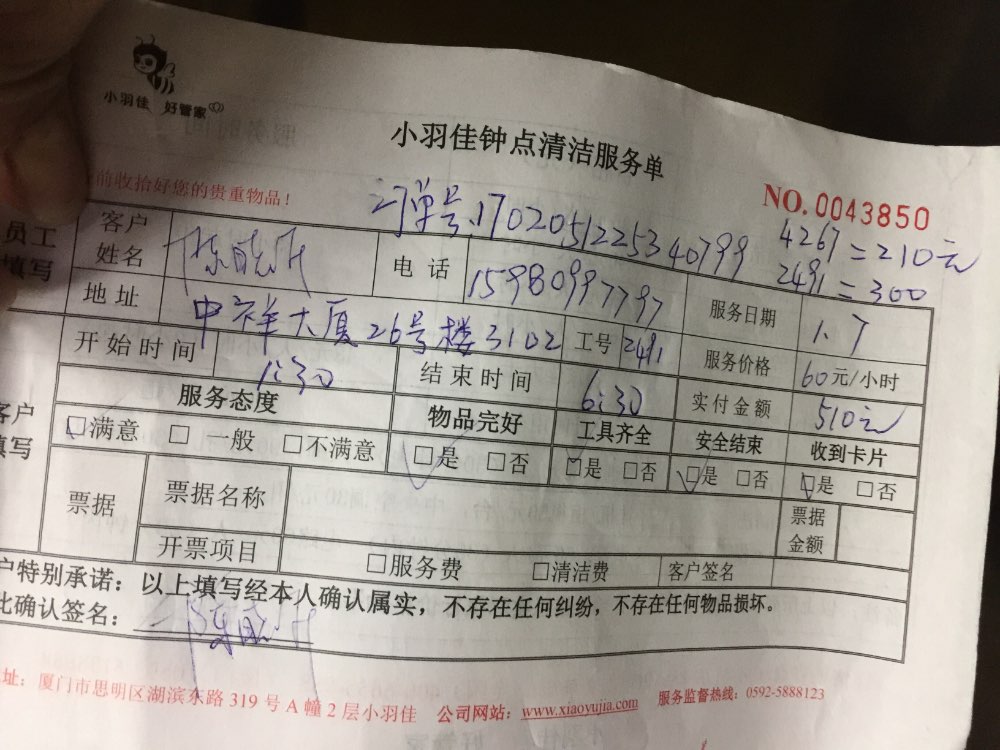 小羽佳 好管家
小羽佳钟点清洁服务单
前收拾好您的贵重物品！
NO. 0043850
订单号.1702051225340799
4267=210元
2491=300
员工填写
客户姓名
电话 15980997797
服务日期 1.7
地址 中祥大厦26号楼3102
工号 2491
服务价格 60元/小时
开始时间 1:30
结束时间 6:30
实付金额 510元
服务态度 物品完好 工具齐全 安全结束 收到卡片
客户填写
□满意 □一般 □不满意 □是 □否 □是 □否 □是 □否 □是 □否
票据 票据名称 票据金额
开票项目 □服务费 □清洁费 客户签名
户特别承诺：以上填写经本人确认属实，不存在任何纠纷，不存在任何物品损坏。
此确认签名：
址：厦门市思明区湖滨东路319号A幢2层小羽佳 公司网站：www.xiaoyujia.com 服务监督热线：0592-5888123